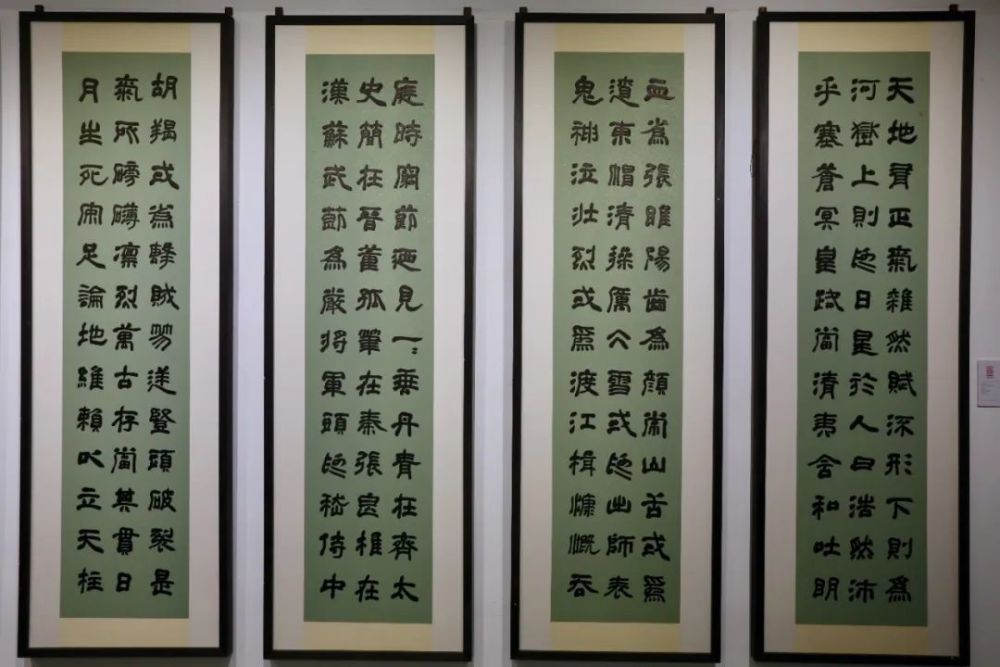 天地有正氣雜然賦流形下則為
河嶽上則為日星於人曰浩然沛
乎塞蒼冥皇路當清夷含和吐明
血為張睢陽齒為顏常山舌或為
遼東帽清操厲仌雪或為出師表
鬼神泣壯烈或為渡江楫慷慨吞
庭時窮節迺見一〻垂丹青在齊太
史簡在晉董狐筆在秦張良椎在
漢蘇武節為嚴將軍頭為嵇侍中
胡羯或為擊賊笏逆豎頭破裂是
氣所磅礴凜烈萬古存當其貫日
月生死安足論地維賴以立天柱